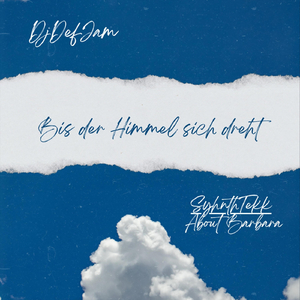 DjDefJam
Bis der Himmel sich dreht
SyhnthTekk
About Barbara